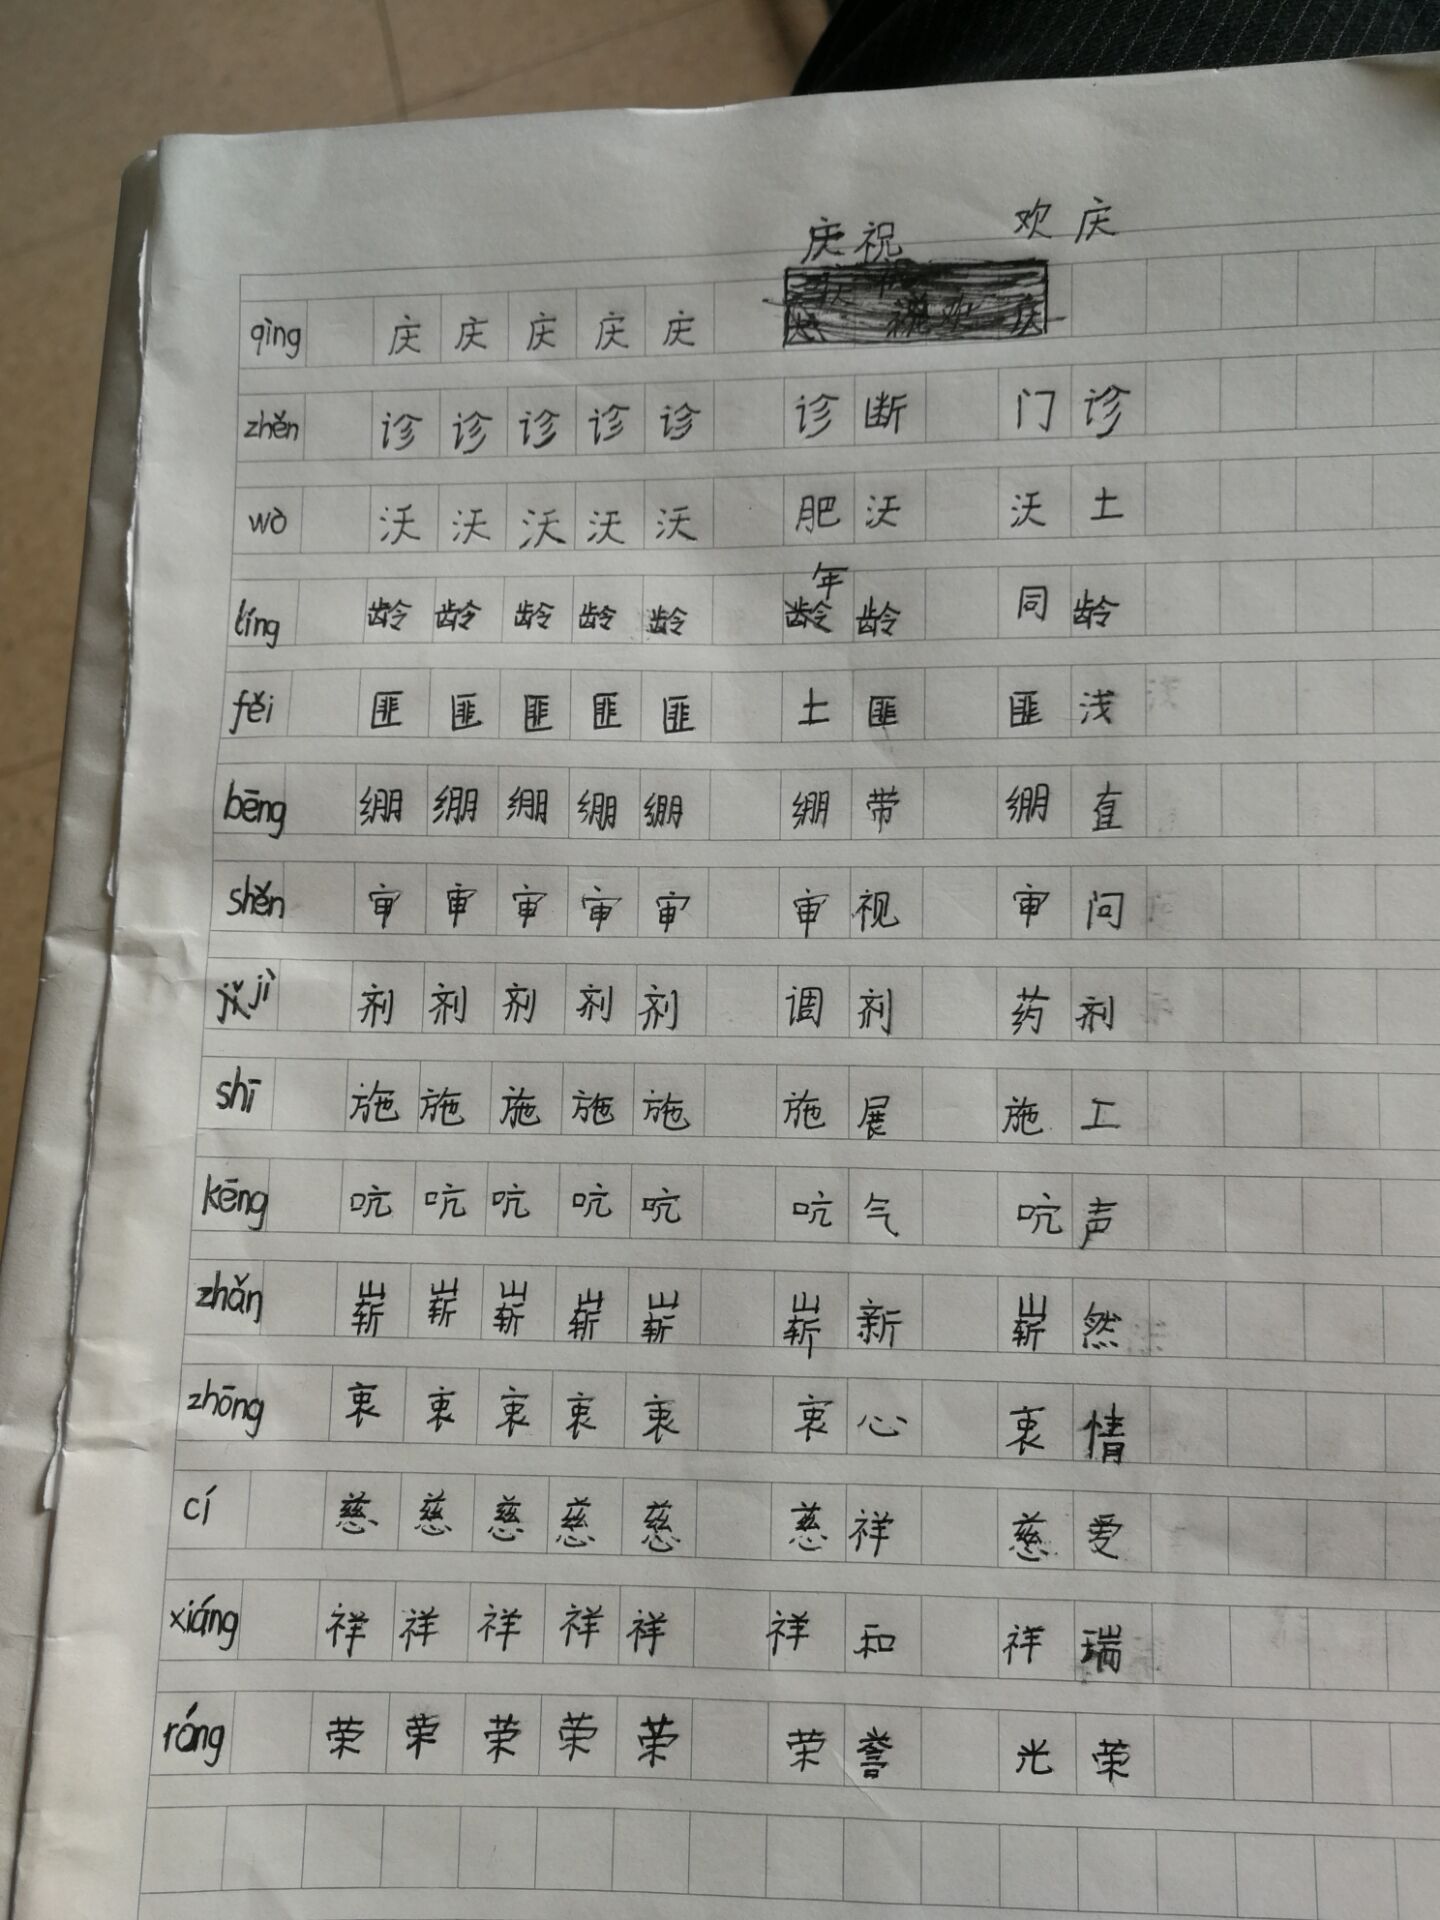 庆祝 欢庆
qìng 庆 庆 庆 庆 庆
zhěn 诊 诊 诊 诊 诊 诊断 门诊
wò 沃 沃 沃 沃 沃 肥沃 沃土
líng 龄 龄 龄 龄 龄 年龄 同龄
fěi 匪 匪 匪 匪 匪 土匪 匪浅
bēng 绷 绷 绷 绷 绷 绷带 绷直
shěn 审 审 审 审 审 审视 审问
jì 剂 剂 剂 剂 剂 调剂 药剂
shī 施 施 施 施 施 施展 施工
kēng 吭 吭 吭 吭 吭 吭气 吭声
zhǎn 崭 崭 崭 崭 崭 崭新 崭然
zhōng 衷 衷 衷 衷 衷 衷心 衷情
cí 慈 慈 慈 慈 慈 慈祥 慈爱
xiáng 祥 祥 祥 祥 祥 祥和 祥瑞
róng 荣 荣 荣 荣 荣 荣誉 光荣